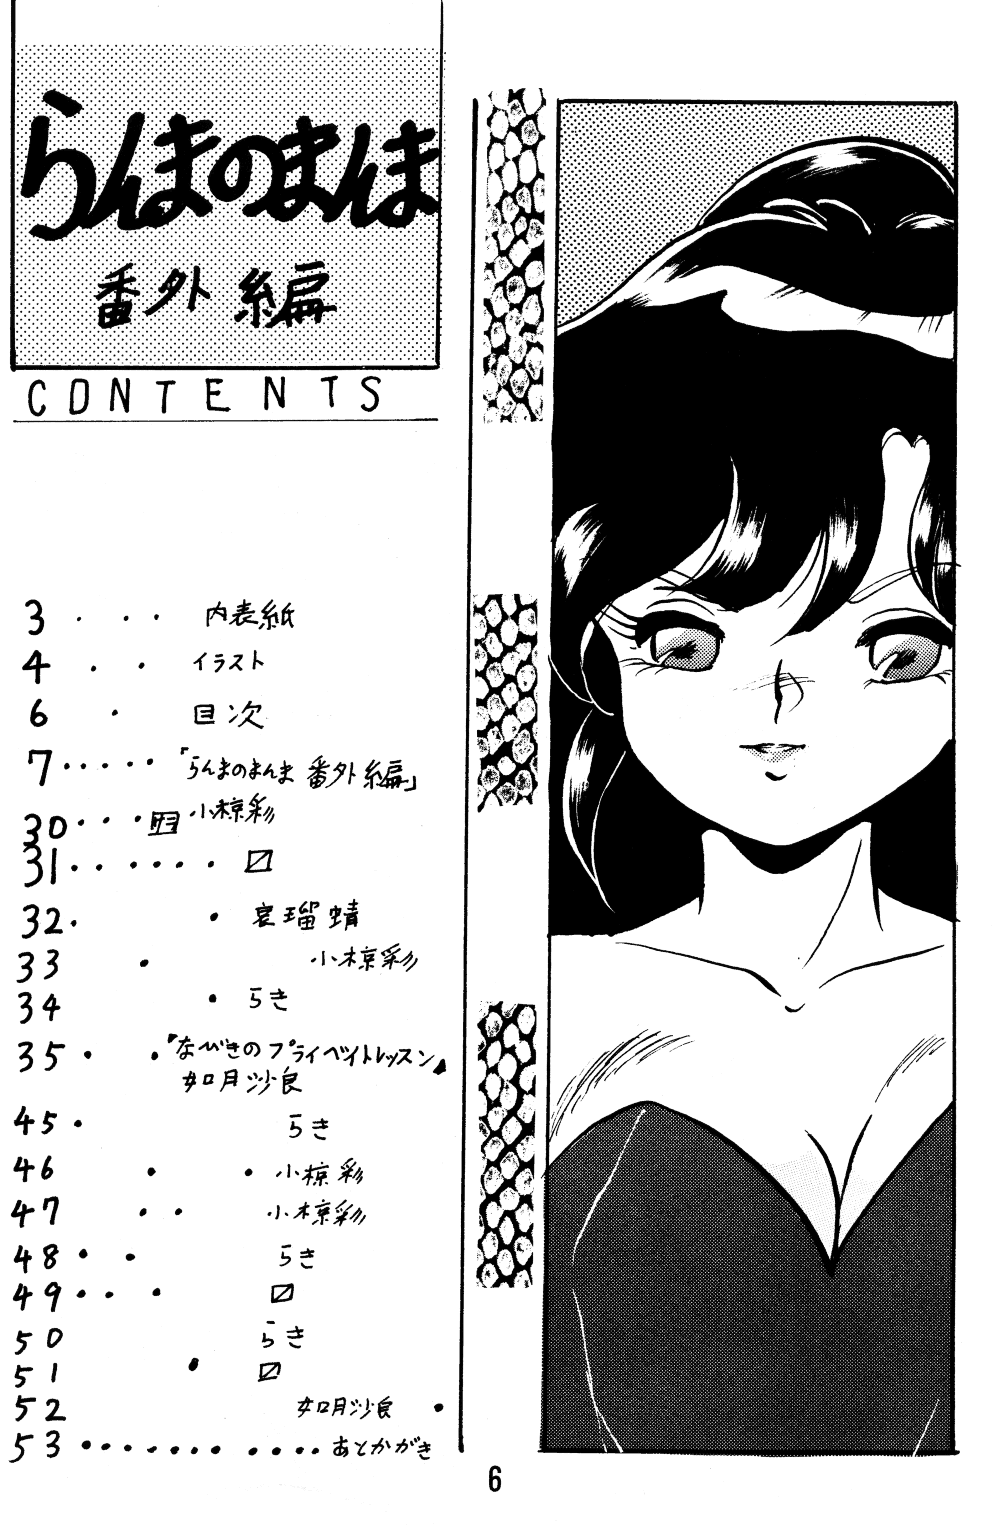 らんまのまんま
番外編
CONTENTS
3 ・ ・ ・ 内表紙
4 ・ ・ イラスト
6 ・ 目次
7 ・・・・・ 「らんまのまんま 番外編」
小椋彩
30 ・・・
31 ・・・・・・ 〼
32 ・ ・ 哀瑠蜻
33 ・ 小椋彩
34 ・ らき
35 ・ ・ 『なびきのプライベイトレッスン』
如月沙良
45 ・ らき
46 ・ ・ 小椋彩
47 ・ ・ 小椋彩
48 ・ ・ らき
49 ・・ ・ 〼
50 らき
51 ・ 〼
52 如月沙良 ・
53 ・・・・・・・ ・・・・ あとがき
6